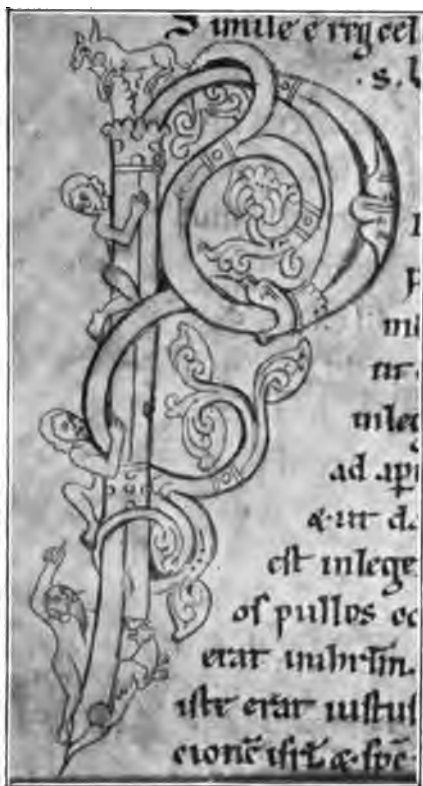 Simile e reg cel
.s. l
p
mi
ut
inleg
ad ap̄i
&.ut d
est inlege
os pullos oc
erat inhrl̄m.
iste erat iustus
cionē isrł. & spē.